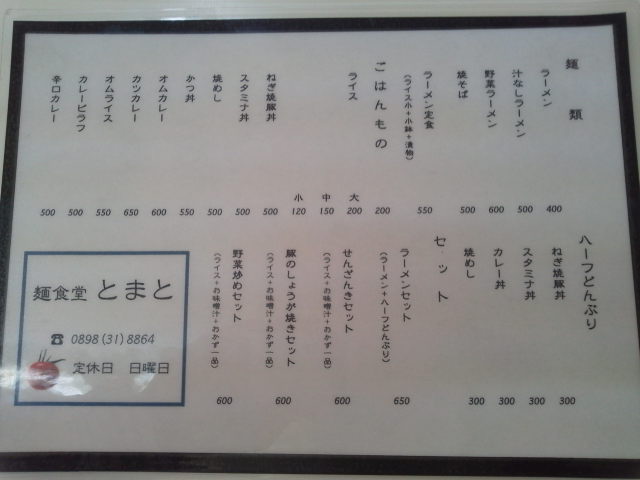 麺類
ラーメン 400
汁なしラーメン 500
野菜ラーメン 600
焼そば 500
ラーメン定食 550
(ライス小+小鉢+漬物)
ごはんもの 200
ライス 大 200
中 150
小 120
ねぎ焼豚丼 500
スタミナ丼 500
焼めし 500
かつ丼 550
オムカレー 600
カツカレー 650
オムライス 550
カレーピラフ 500
辛口カレー 500
ハーフどんぶり
ねぎ焼豚丼 300
スタミナ丼 300
カレー丼 300
焼めし 300
セット
ラーメンセット 650
(ラーメン+ハーフどんぶり)
せんざんきセット 600
(ライス+お味噌汁+おかず一品)
豚のしょうが焼きセット 600
(ライス+お味噌汁+おかず一品)
野菜炒めセット 600
(ライス+お味噌汁+おかず一品)
麺食堂 とまと
☎ 0898(31)8864
定休日 日曜日